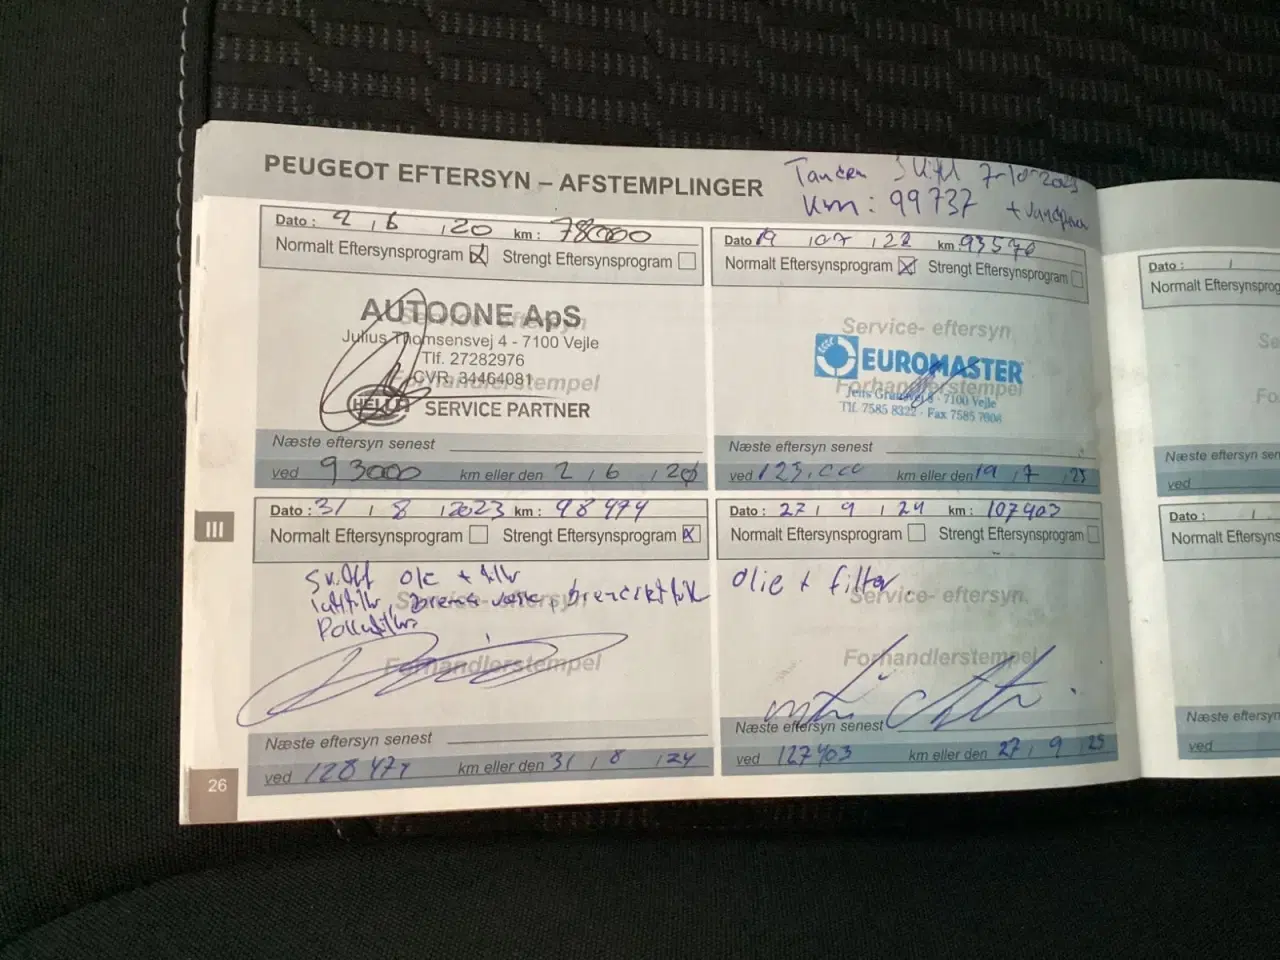 PEUGEOT EFTERSYN – AFSTEMPLINGER
Km: 99737
Dato : 2 6 20 km : 78000
Normalt Eftersynsprogram Strengt Eftersynsprogram
AUTOONE ApS
Service- eftersyn
Julius Thomsensvej 4 - 7100 Vejle
Tlf. 27282976
CVR. 34464081
Forhandlerstempel
HELLA SERVICE PARTNER
Næste eftersyn senest
ved 93000 km eller den 2 6 20
Dato 19 07 22 km : 93570
Normalt Eftersynsprogram Strengt Eftersynsprogram
Service- eftersyn
EUROMASTER
Forhandlerstempel
7100 Vejle
Tlf. 7585 8322 - Fax 7585 7606
Næste eftersyn senest
ved 123.000 km eller den 19 7 23
III
Dato : 31 8 2023 km : 98477
Normalt Eftersynsprogram Strengt Eftersynsprogram
olie + filter
Service- eftersyn
Forhandlerstempel
Næste eftersyn senest
ved 128477 km eller den 31 8 24
Dato : 27 9 24 km : 107403
Normalt Eftersynsprogram Strengt Eftersynsprogram
olie + filter.
Service- eftersyn.
Forhandlerstempel
Næste eftersyn senest
ved 127403 km eller den 27 9 25
26
Dato :
Normalt Eftersynsprog
Se
Fo
Næste eftersyn sen
ved
Dato :
Normalt Eftersyns
Næste eftersyn
ved